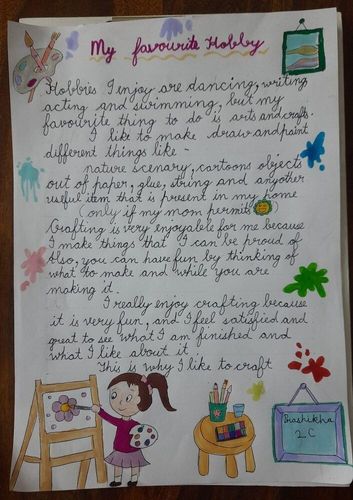 My favourite Hobby
Hobbies I enjoy are dancing, writing
acting and swimming, but my
favourite thing to do is arts and crafts.
I like to make draw and paint
different things like -
nature scenary, cartoons objects
out of paper, glue, string and anyother
useful item that is present in my home
(only if my mom permits
Crafting is very enjoyable for me because
I make things that I can be proud of
Also, you can have fun by thinking of
what to make and while you are
making it.
I really enjoy crafting because
it is very fun, and I feel satisfied and
great to see what I am finished and
what I like about it.
This is why I like to craft
Srashikha
2 C